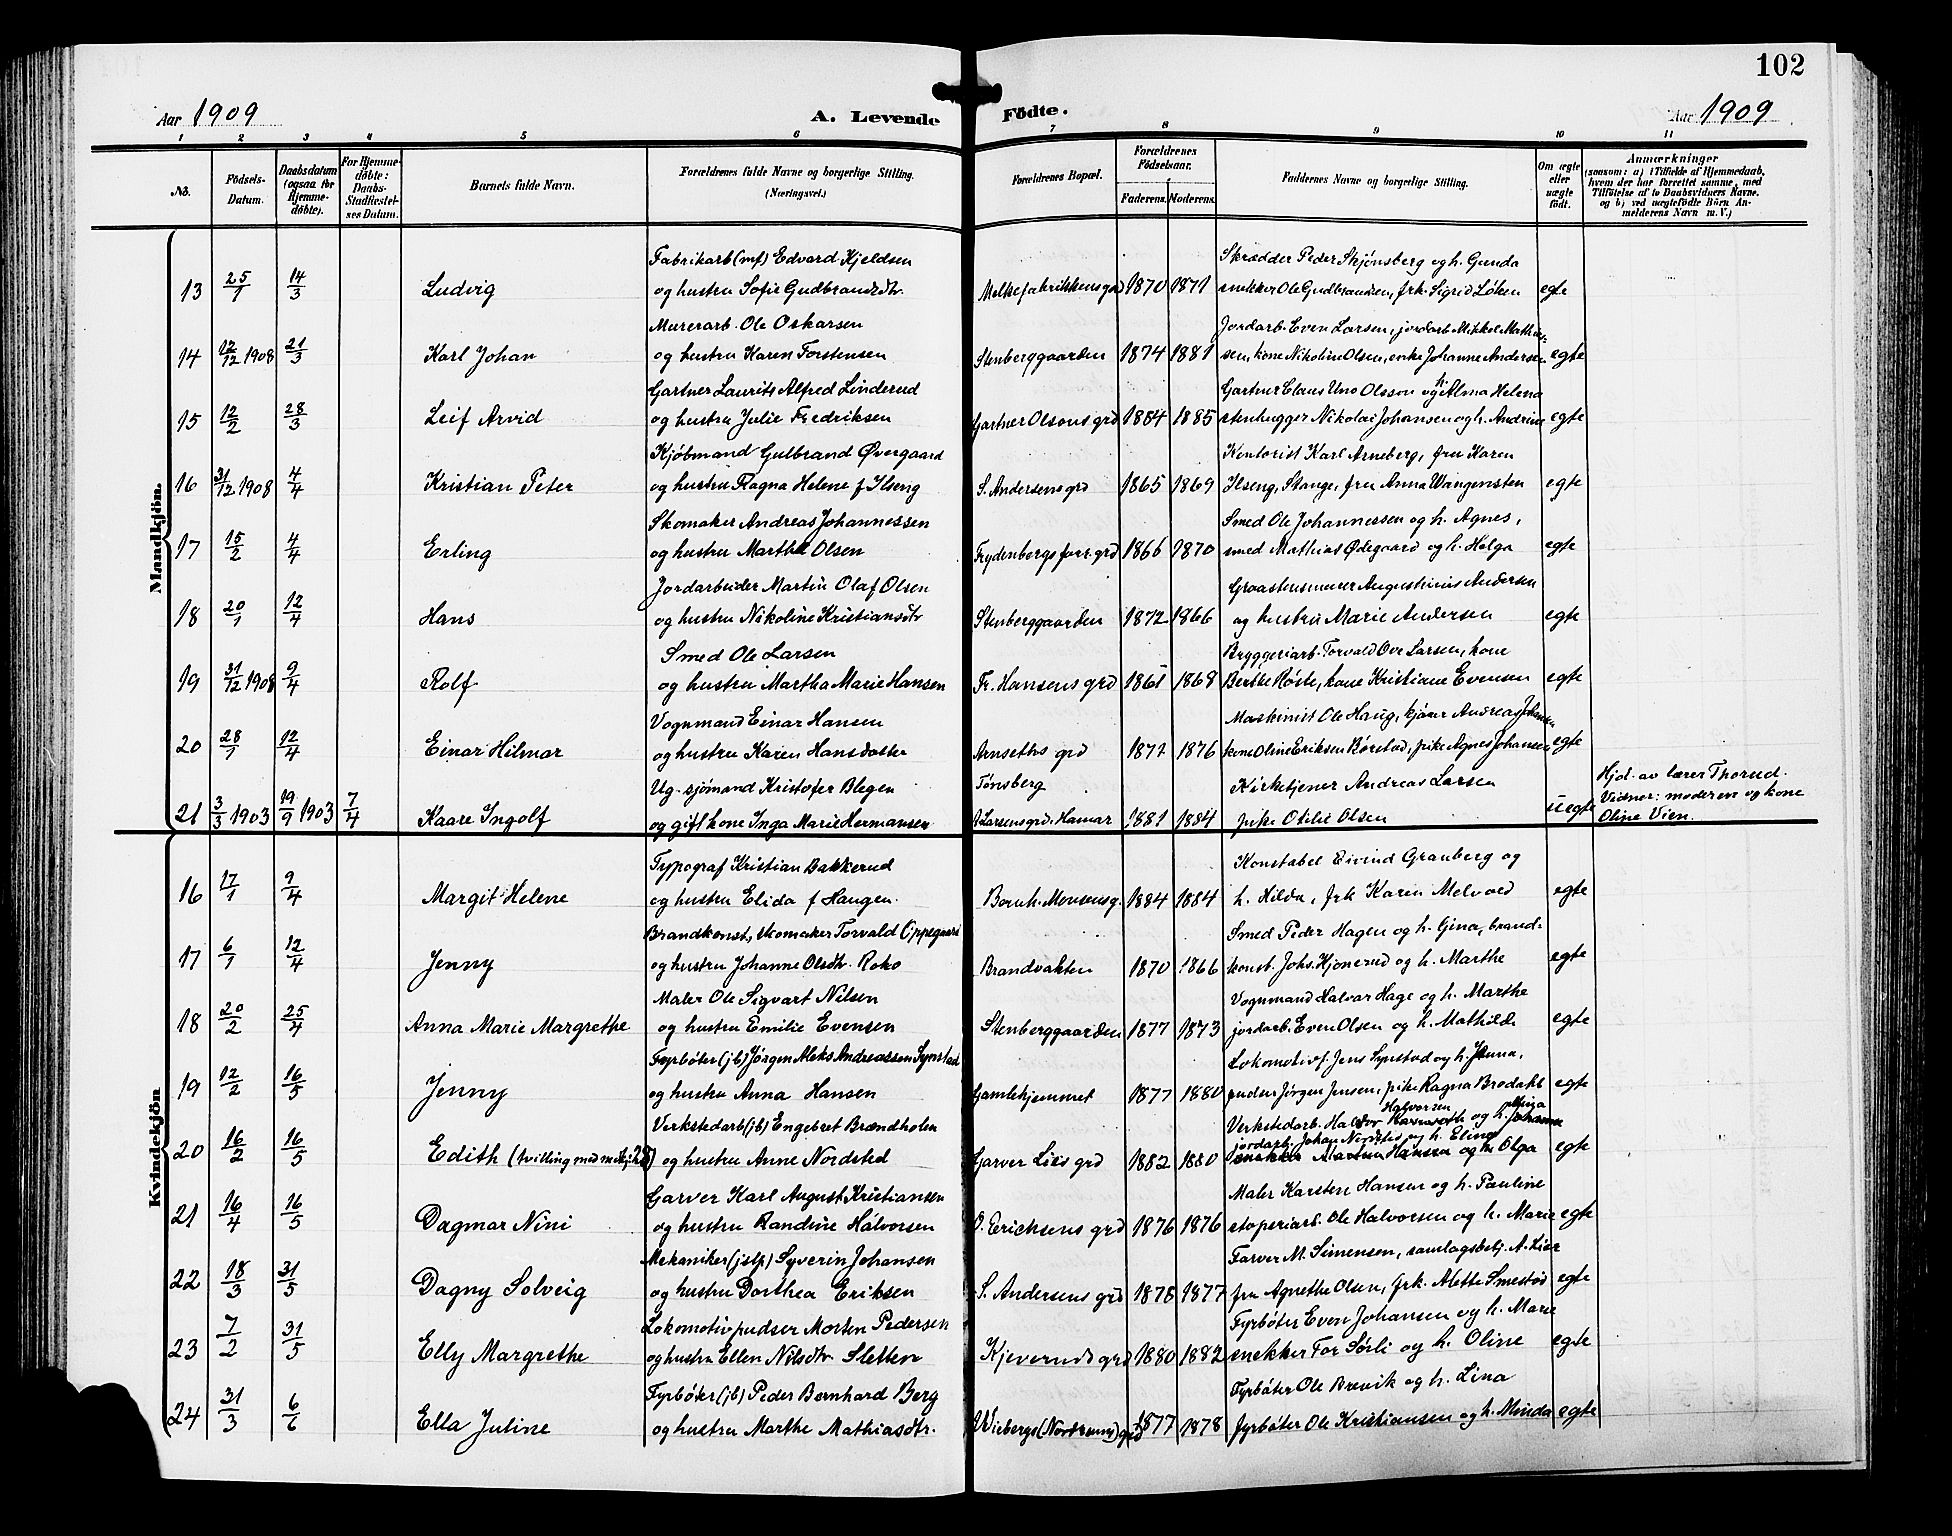 102
Aar 1909
A. Levende Födte.
Aar 1909
1 2 3 4 5 6 7 8 9 10 11
No.
Födsels-Datum.
Daabsdatum (ogsaa for Hjemme-döbte).
For Hjemme-döbte: Daabs-Stadfæstel-ses Datum.
Barnets fulde Navn.
Forældrenes fulde Navne og borgerlige Stilling. (Næringsvei.)
Forældrenes Bopæl.
Forældrenes Födselsaar.
Faderens. Moderens.
Faddernes Navne og borgerlige Stilling.
Om ægte eller uægte födt.
Anmærkninger (saasom: a) i Tilfælde af Hjemmedaab, hvem der har forrettet samme, med Tilföielse af to Daabsvidners Navne, og b) ved uægtefödte Börn An-melderens Navn m. V.)
Mandkjön.
Fabrikarb (mf) Edvard Kjeldsen Skrædder Peder Skjønsberg og h. Gunda
13 25/1 14/3 Ludvig og hustru Sofie Gudbrandsdtr. Melkefabrikkensgrd 1870 1871 snekker Ole Gudbrandsen, frk. Sigrid Løken egte
Murerarb. Ole Oskarsen Jordarb. Even Larsen, jordarb Mikkel Mathie-
14 12/12 1908 21/3 Karl Johan og hustru Karen Torstensen Stenberggaarden 1874 1881 sen, kone Nikoline Olsen, enke Johanne Andersen egte
Gartner Laurits Alfred Linderud Gartner Claus Uno Olsson og h. Alma Helena
15 12/2 28/3 Leif Arvid og hustru Julie Fredriksen Gartner Olsons grd 1884 1885 stenhugger Nikolai Johansen og h. Andrine egte
Kjøbmand Gulbrand Øvergaard Kontorist Karl Arneberg, fru Karen
16 31/12 1908 4/4 Kristian Peter og hustru Ragna Helene f Ilseng S. Andersens grd 1865 1869 Ilseng, Stange, fru Anna Wangensten egte
Skomaker Andreas Johannessen Smed Ole Johannessen og h. Agnes,
17 15/2 4/4 Erling og hustru Marthe Olsen Frydenbergs forr. grd 1866 1870 smed Mathias Ødegaard og h. Helga egte
Jordarbeider Martin Olaf Olsen Graastensmurer Augustinius Andersen
18 20/1 12/4 Hans og hustru Nikoline Kristiansdtr Stenberggaarden 1872 1866 og hustru Marie Andersen egte
Smed Ole Larsen Bryggeriarb. Torvald Ove Larsen, kone
19 31/12 1908 9/4 Rolf og hustru Martha Marie Hansen Fr. Hansens grd 1865 1868 Berthe Røste, kone Kristiane Evensen egte
Vognmand Einar Hansen Maskinist Ole Haug, kjører Andreas Johansen
20 28/1 12/4 Einar Hilmar og hustru Karen Hansdatter Arnseths grd 1877 1876 kone Oline Eriksen Børstad, pike Agnes Johansen egte
Ug. sjømand Kristofer Blegen Tønsberg Kirketjener Andreas Larsen Hjd. av lærer Thorud.
21 3/3 1903 19/9 1903 7/4 Kaare Ingolf og gift kone Inga Marie Hermansen Larsensgrd. Hamar 1881 1884 pike Otilie Olsen uegte Vidner: moderen og kone Oline Vien.
Kvindekjön
Typograf Kristian Bakkerud Konstabel Eivind Granberg og
16 17/1 9/4 Margit Helene og hustru Elida f Haugen. Bernh. Monsensg. 1884 1884 h. Hilda, frk Karin Melvold egte
Brandkonst, skomaker Torvald Oppegaard Smed Peder Hagen og h. Gina, brand-
17 6/1 12/4 Jenny og hustru Johanne Olsdtr. Roko Brandvakten 1870 1866 konst. Johs. Hjonerud og h. Marthe egte
Maler Ole Sigvart Nilsen Vognmand Halvar Hage og h. Marthe
18 20/2 25/4 Anna Marie Margrethe og hustru Emilie Evensen Stenberggaarden 1877 1873 jordarb. Even Olsen og h. Mathilde egte
Fyrbøter (jb) Jørgen Aleks Andreassen Synstad Lokomotivf. Jens Synstad og h. Janna,
19 12/2 16/5 Jenny og hustru Anna Hansen Gamlehjemmet 1877 1880 pudser Jørgen Jensen, pike Ragna Brodahl egte
Verkstedarb (jb) Engebret Brændholen Verkstedarb. Halvor Halvorsen og h. Johanna
jordarb. Johan Nordstis og h. Eline
20 16/2 16/5 Edith (tvilling med og hustru Anne Nordsted Garver Lies grd 1882 1880 snekker Hansen og h. Olga egte
Garver Karl August Kristiansen Maler Karsten Hansen og h. Pauline
21 16/4 16/5 Dagmar Nini og hustru Randine Halvorsen O. Ericksens grd 1876 1876 støperiarb. Ole Halvorsen og h. Marie egte
Mekaniker (jstp) Syverin Johansen Farver M. Simensen, samlagsbetj. A. Lier
22 18/3 31/5 Dagny Solveig og hustru Dorthea Eriksen S. Andersens grd 1878 1877 fru Agnethe Olsen, frk. Alette Smestad egte
Lokomotivpudser Morten Pedersen Fyrbøter Even Johansen og h. Marie
23 7/2 31/5 Elly Margrethe og hustru Ellen Nilsdtr. Sletten Kjeveruds grd 1880 1882 snekker Tor Sørli og h. Oline egte
Fyrbøter (jb) Peder Bernhard Berg Fyrbøter Ole Brevik og h. Lina
24 31/3 6/6 Ella Juline og hustru Marthe Mathiasdtr. Wiebergs (Nordsruns) grd 1877 1878 fyrbøter Ole Kristiansen og h. Minda egte